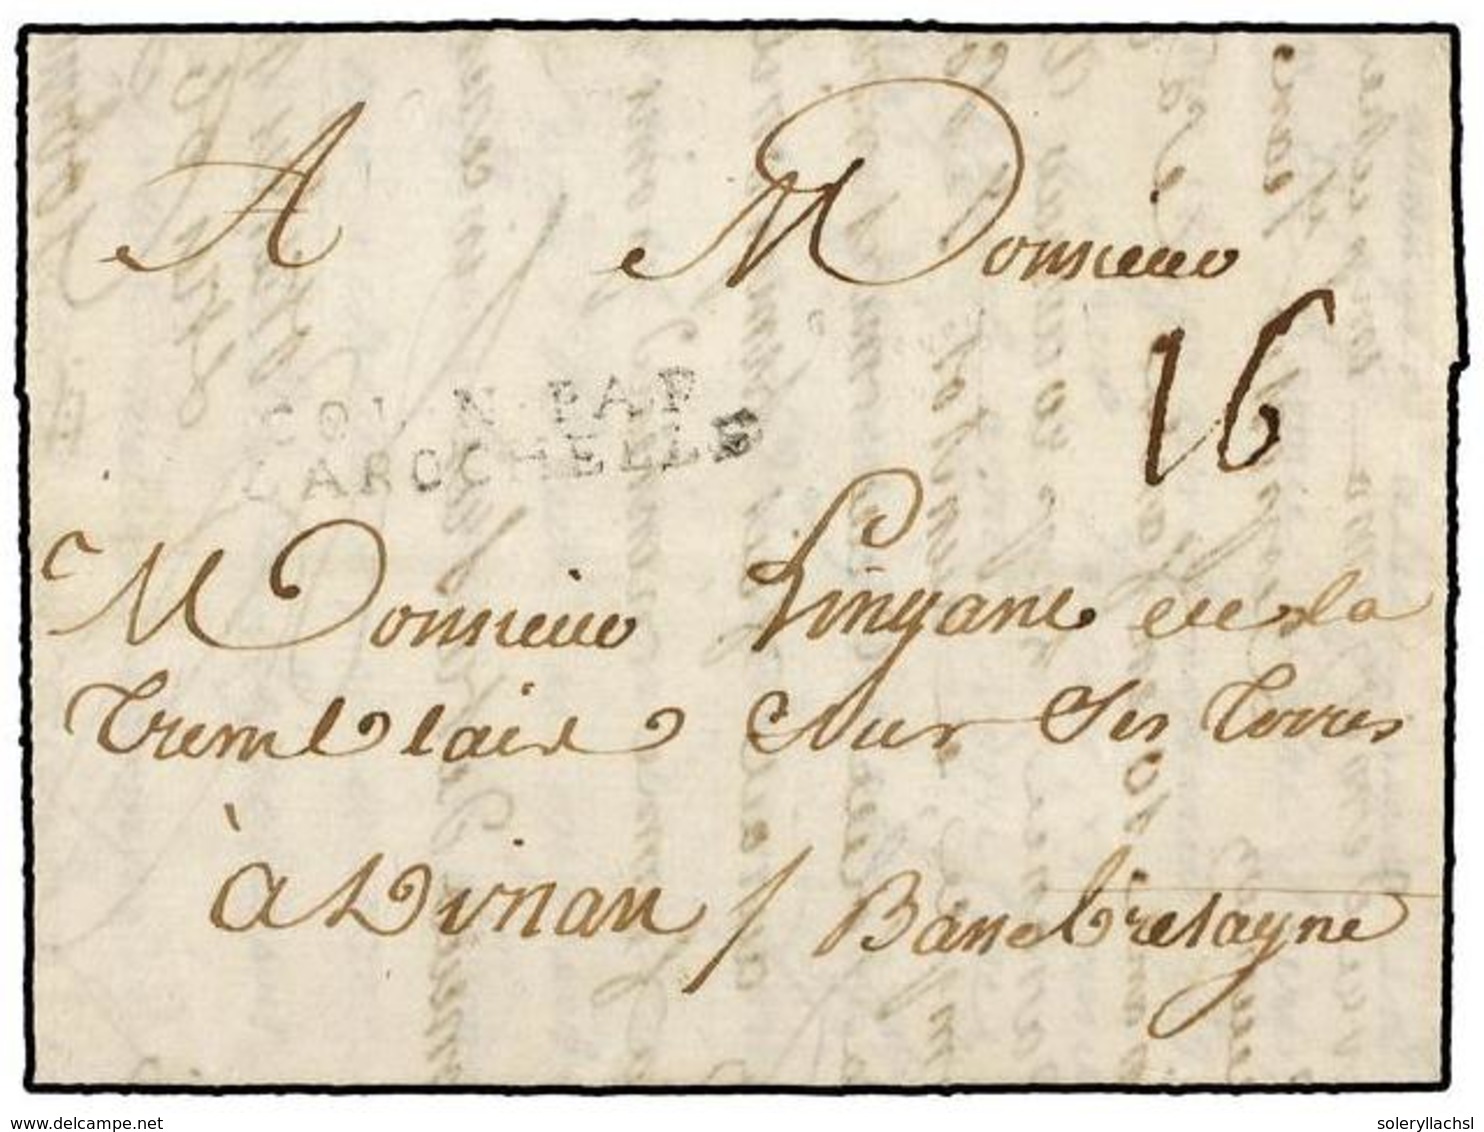 A Monsieur
16
COL N PAR
LAROCHELLE
Monsieur Lingane de la
Tremblais Sur Ses Terres
à Dinan / Basse bretagne
www.delcampe.net
solerylachsl